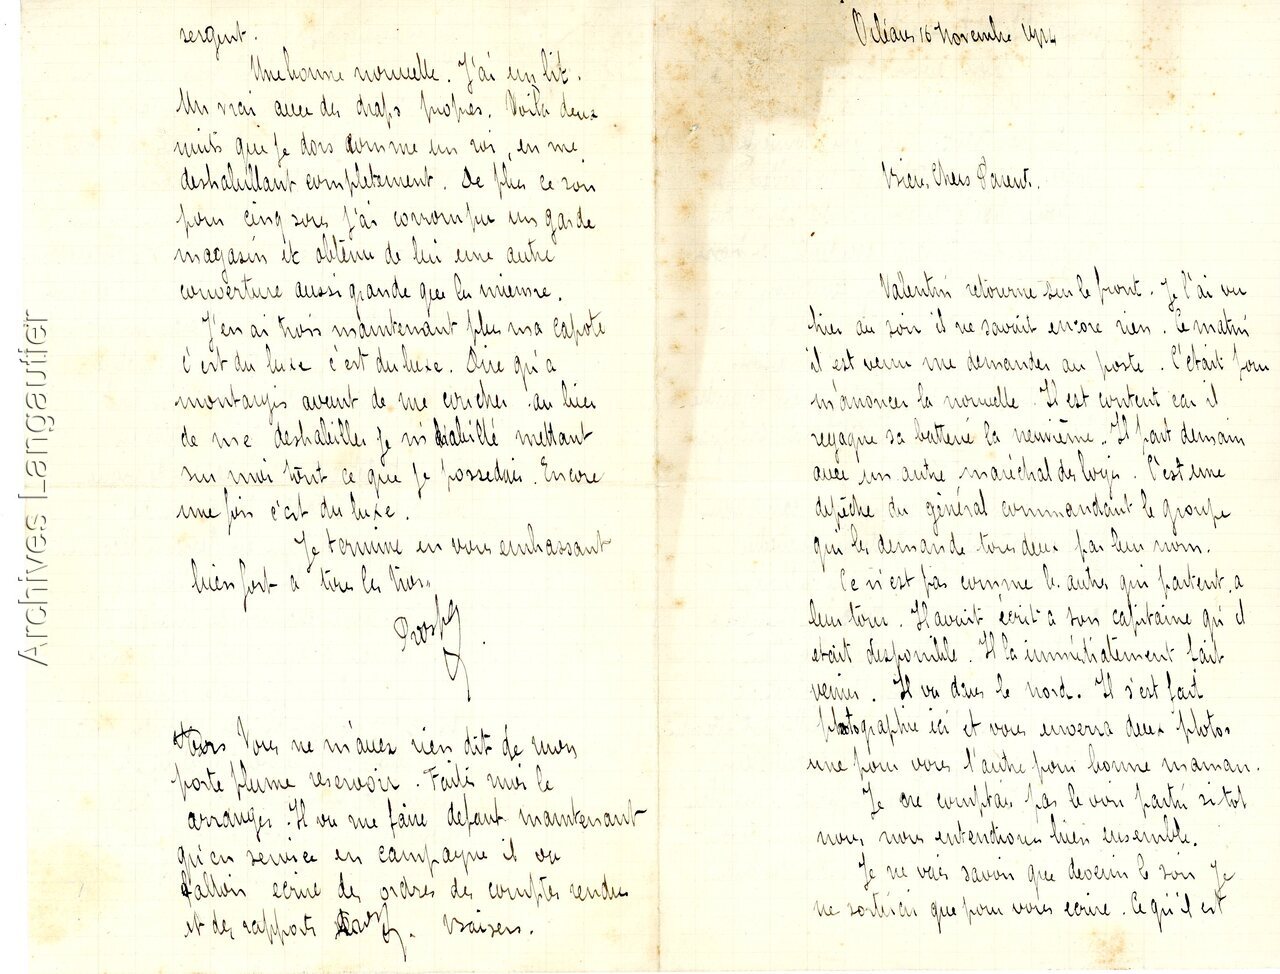 Orléans 16 Novembre 1914
Biens Chers Parents.
Valentin retourne sur le front. Je l'ai vu
hier au soir il ne savait encore rien. Ce matin
il est venu me demander au poste. C'était pour
m'anoncer la nouvelle. Il est content car il
regagne sa batterie la neuvième. Il part demain
avec un autre maréchal des logis. C'est une
depêche du général commandant le groupe
qui les demande tous deux par leur nom.
Ce n'est pas comme les autres qui partent a
leur tour. Il avait écrit a son capitaine qu'il
etait disponible. Il la immédiatement fait
venir. Il va dans le nord. Il s'est fait
photographié ici et vous enverra deux photos
une pour vous l'autre pour bonne maman.
Je ne comptais pas le voir partir si tot
nous nous entendions bien ensemble.
Je ne vais savoir que devenir le soir je
ne sortirai que pour vous ecrire. Ce qu'il est
sergent.
Une bonne nouvelle. J'ai un lit.
Un vrai avec des draps propres. Voilà deux
nuits que je dors comme un roi, en me
deshabillant completement. De plus ce soir
pour cinq sous j'ai corrompu un garde
magasin et obtenu de lui une autre
couverture aussi grande que la mienne.
J'en ai trois maintenant plus ma capote
c'est du luxe c'est du luxe. Dire qu'a
montargis avant de me coucher au lieu
de me deshabiller je m'habillé mettant
sur moi tout ce que je possedais. Encore
une fois c'est du luxe.
Je termine en vous embrassant
bien fort a tous les trois
Prosper
Vous ne m'avez rien dit de mon
porte plume reservoir. Faites moi le
arranger. Il va me faire defaut maintenant
qu'en service en campagne il va
falloir ecrire des ordres des comptes rendus
et des rapports. Baisers.
Archives Langautier